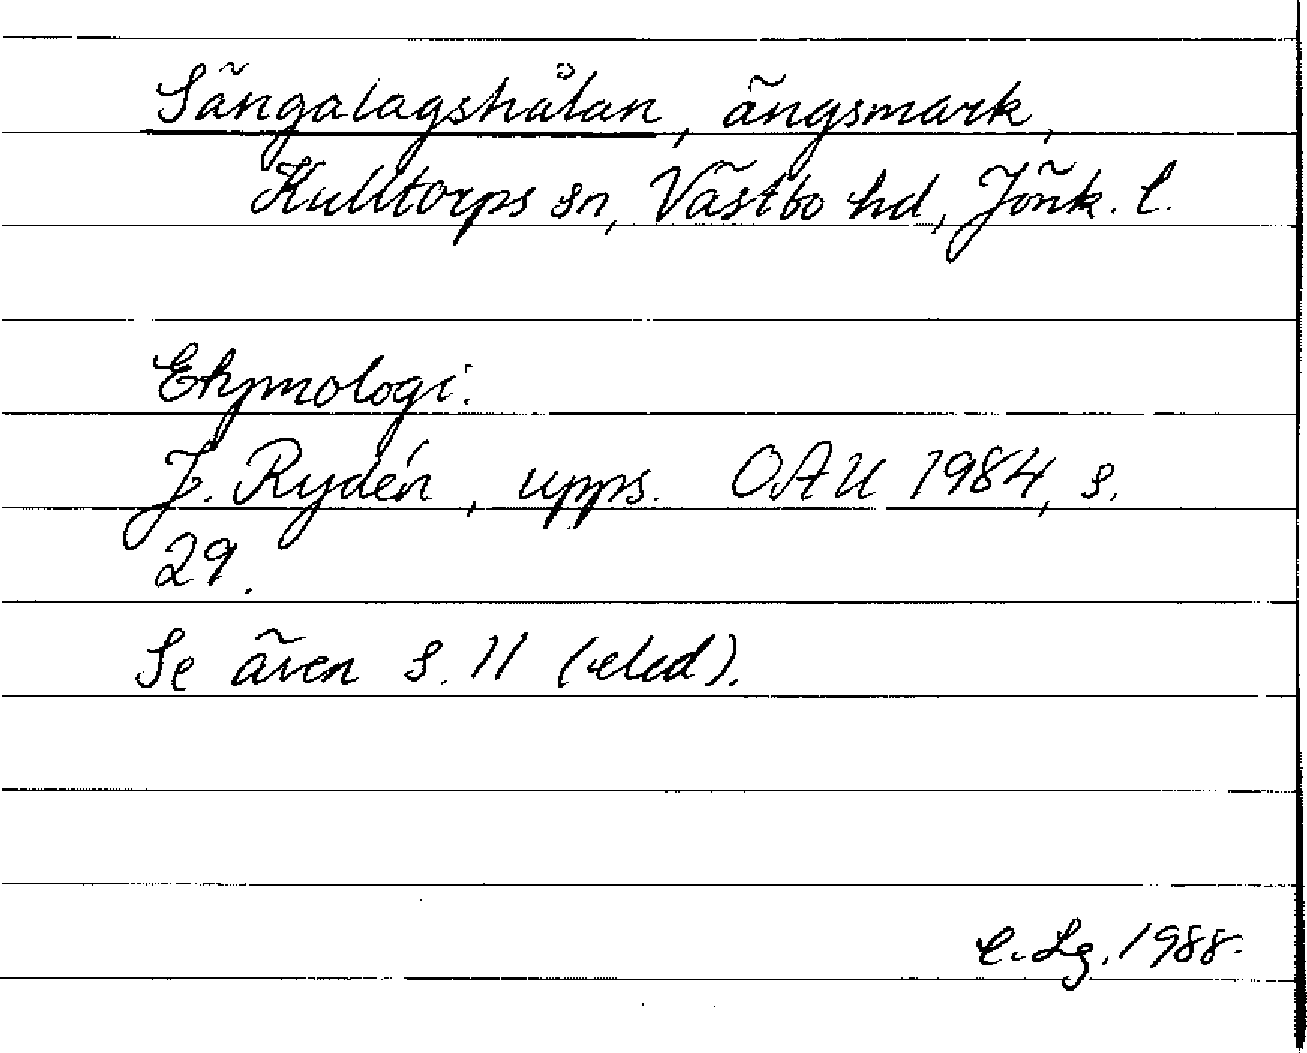 Sängalagshålan, ängsmark,
Kulltorps sn, Västbo hd, Jönk. l.
Etymologi.
J. Rydén, upps. OAU 1984, s.
29.
Se även s. 11 (eled).
C. Lg. 1988.